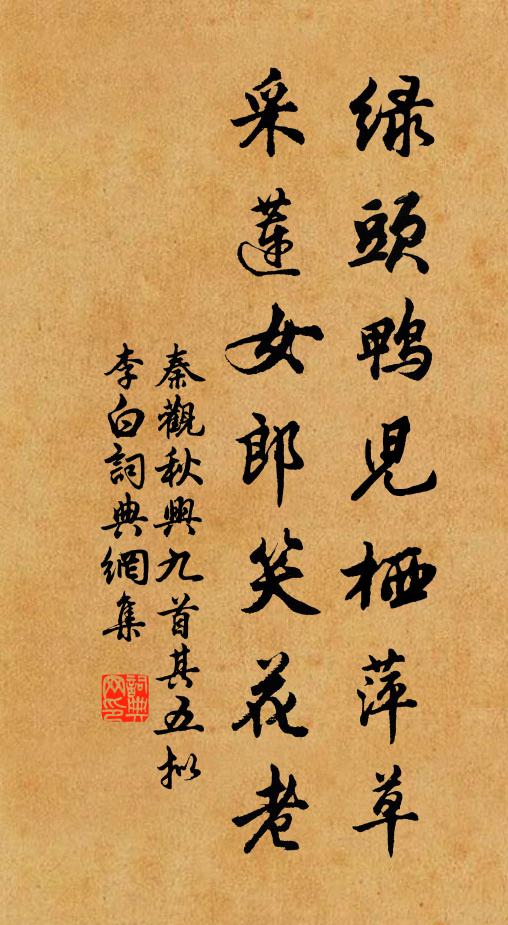 绿頭鴨児栖萍草
采蓮女郎笑花老
秦觀秋興九首其五拟
李白詞典網集
詞典网印